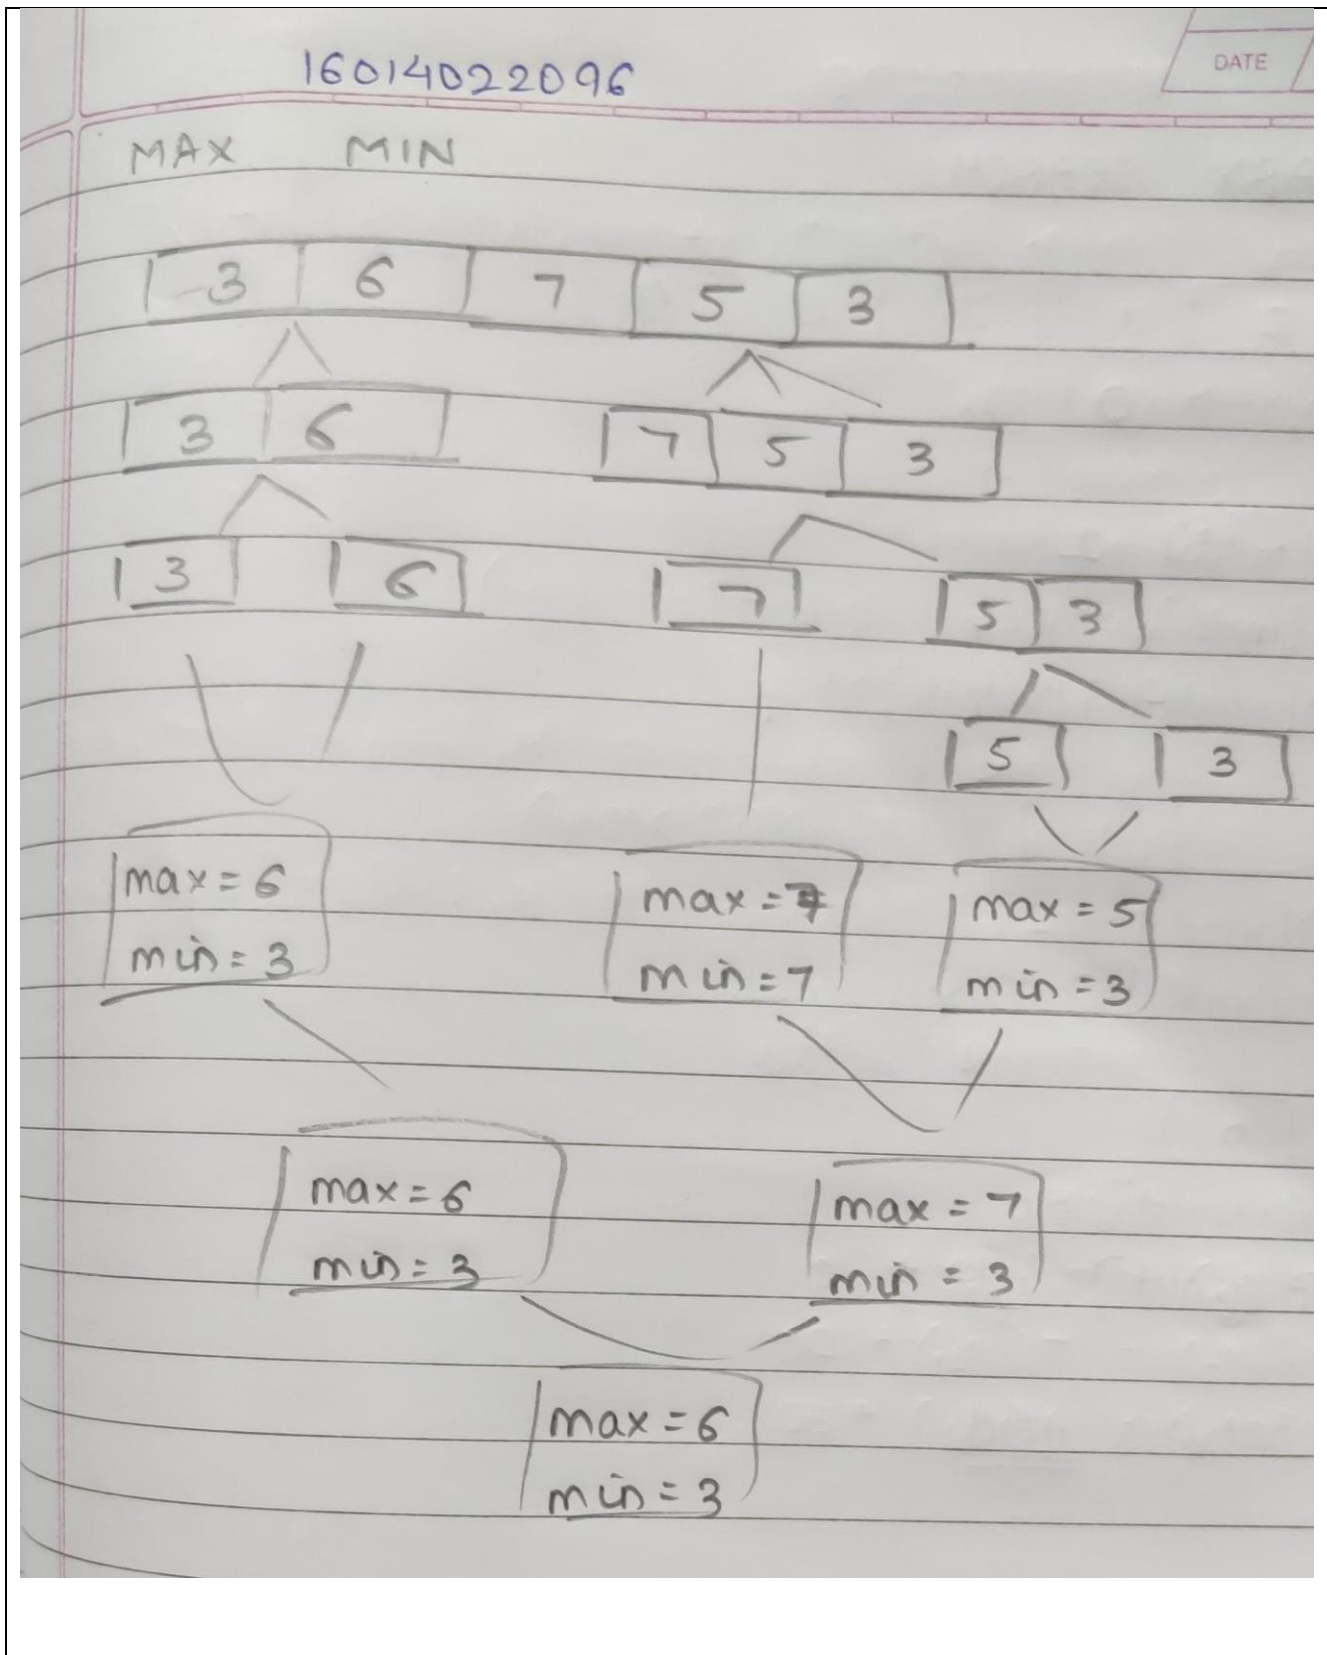 16014022096
DATE
MAX MIN
3 6 7 5 3
3 6 7 5 3
3 6 7 5 3
5 3
max = 6 max = 7 max = 5
min = 3 min = 7 min = 3
max = 6 max = 7
min = 3 min = 3
max = 6
min = 3